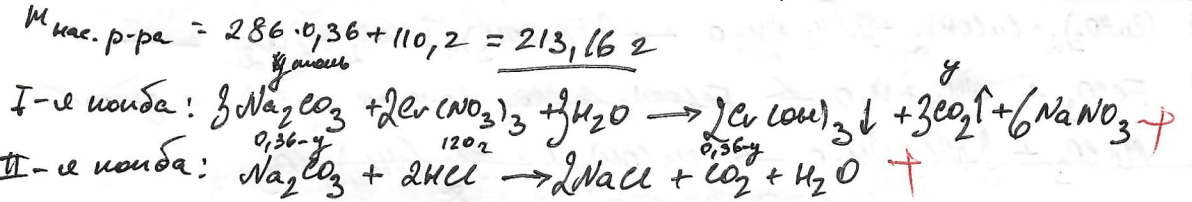 m нас. р-ра = 286·0,36+110,2 = 213,16 г
y моль y
I-я колба: 3Na₂CO₃ + 2Cr(NO₃)₃ + 3H₂O ⟶ 2Cr(OH)₃↓ + 3CO₂↑ + 6NaNO₃ +
0,36-y 120г 0,36-y
II-я колба: Na₂CO₃ + 2HCl ⟶ 2NaCl + CO₂ + H₂O +